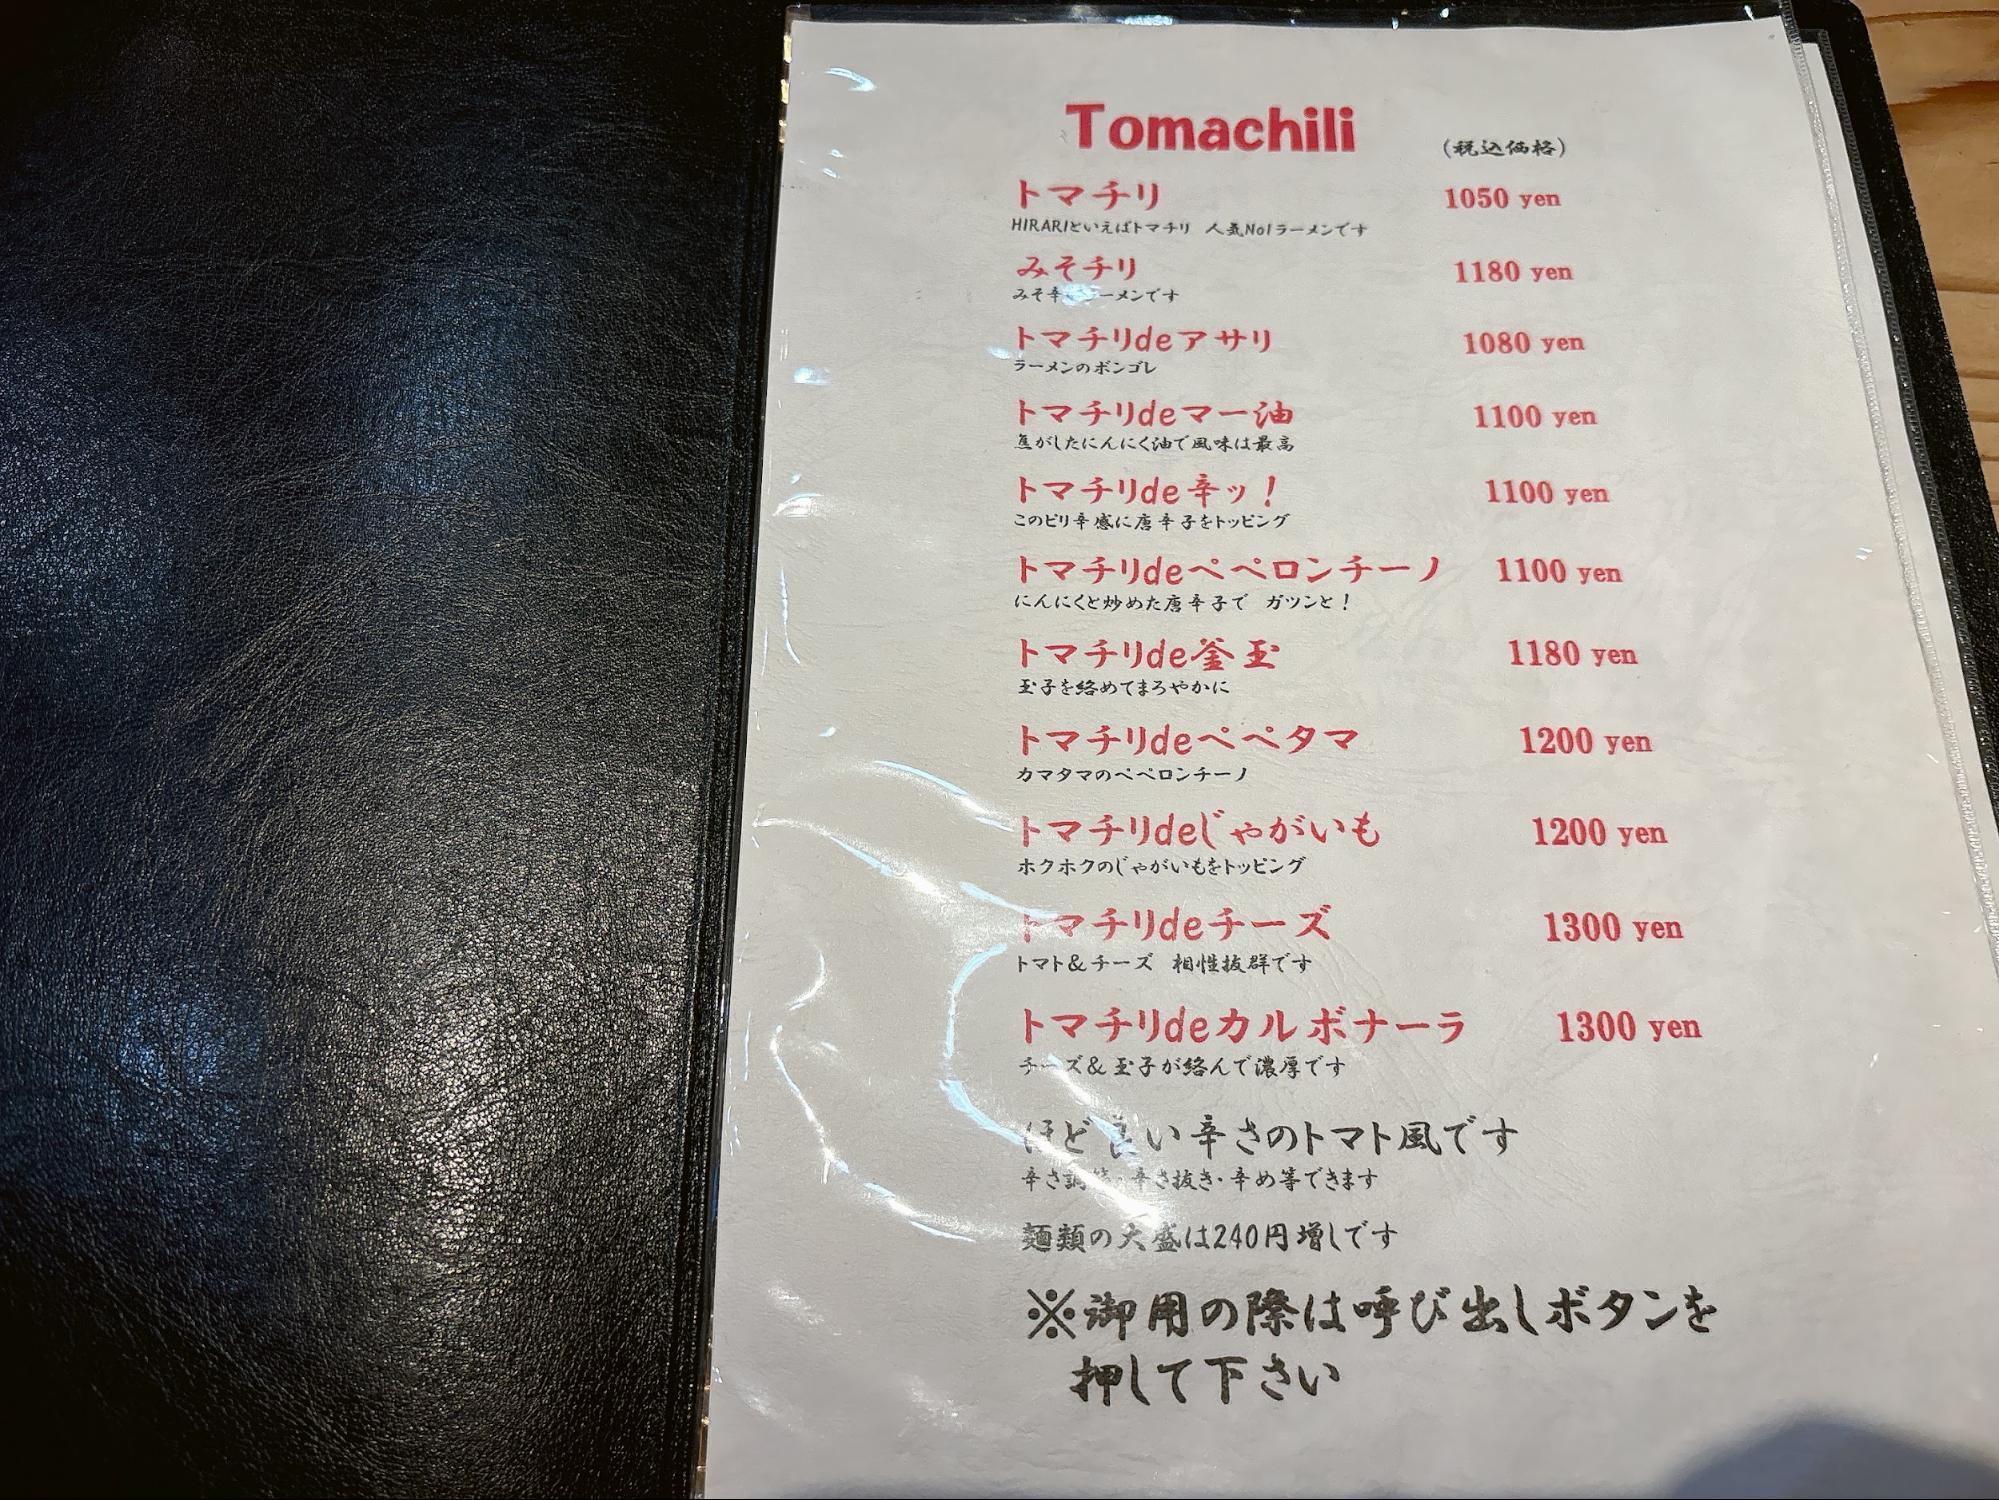 Tomachili (税込価格)
トマチリ 1050 yen
HIRARIといえばトマチリ 人気No1ラーメンです
みそチリ 1180 yen
みそ辛 ラーメンです
トマチリdeアサリ 1080 yen
ラーメンのボンゴレ
トマチリdeマー油 1100 yen
焦がしたにんにく油で風味は最高
トマチリde辛ッ! 1100 yen
このピリ辛感に唐辛子をトッピング
トマチリdeペペロンチーノ 1100 yen
にんにくと炒めた唐辛子で ガツンと!
トマチリde釜玉 1180 yen
玉子を絡めてまろやかに
トマチリdeペペタマ 1200 yen
カマタマのペペロンチーノ
トマチリdeじゃがいも 1200 yen
ホクホクのじゃがいもをトッピング
トマチリdeチーズ 1300 yen
トマト&チーズ 相性抜群です
トマチリdeカルボナーラ 1300 yen
チーズ&玉子が絡んで濃厚です
ほど良い辛さのトマト風です
辛さ調節・辛さ抜き・辛め等できます
麺類の大盛は240円増しです
※御用の際は呼び出しボタンを
押して下さい